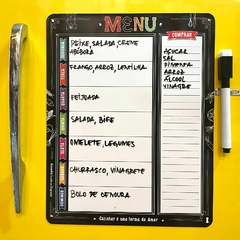 MENU
PEIXE, SALADA, CREME
ABÓBORA
FRANGO, ARROZ, LENTILHA
FEIJOADA
SALADA, BIFE
OMELETE, LEGUMES
CHURRASCO, VINAGRETE
BOLO DE CENOURA
COMPRAR
AÇUCAR
SAL
PIMENTA
ARROZ
ÁLCOOL
VINAGRE
Cozinhar é uma forma de Amar